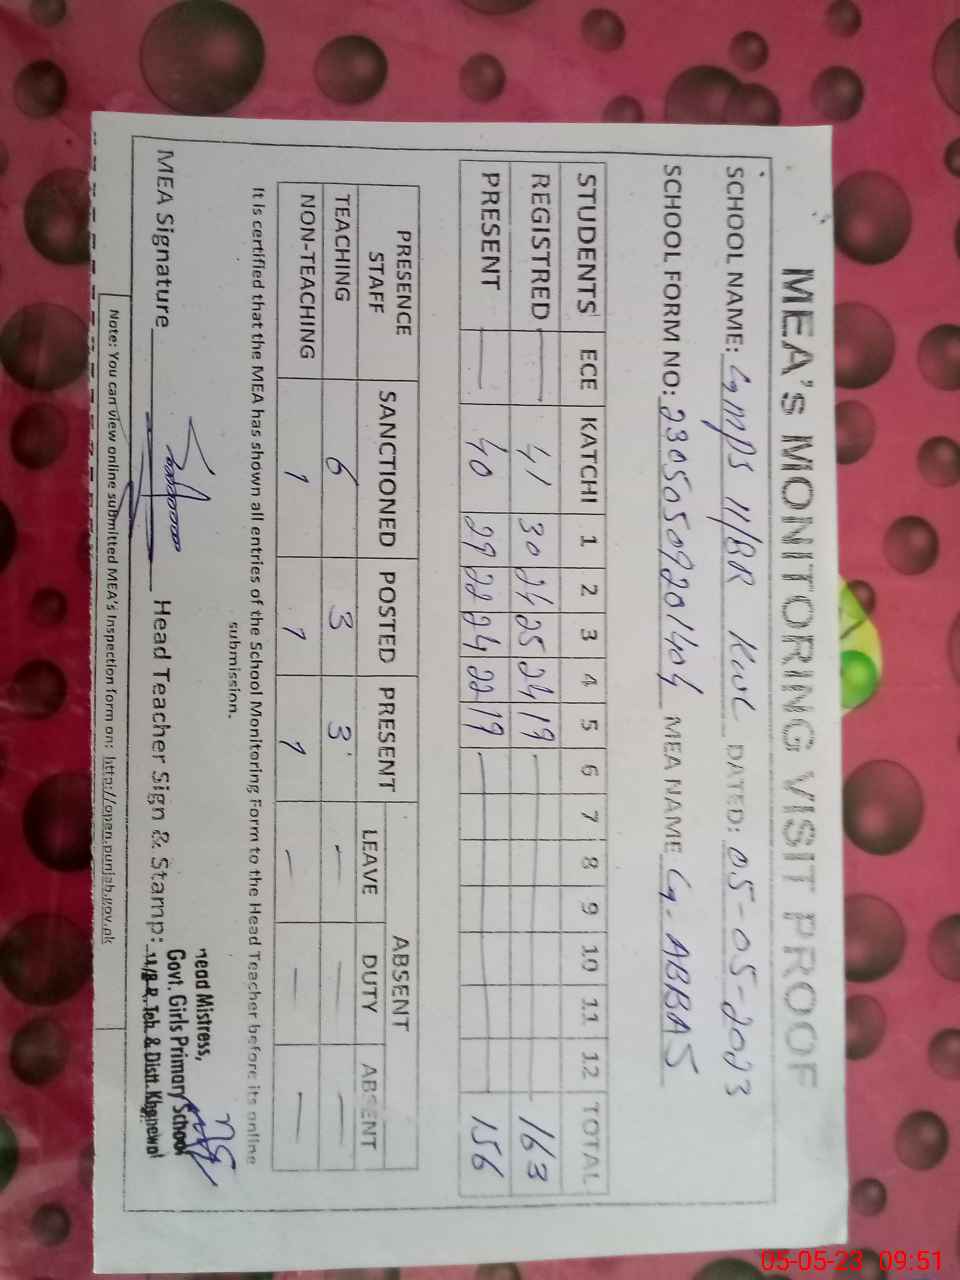 MEA'S MONITORING VISIT PROOF
SCHOOL NAME: GMPS 11/8R KWL DATED: 05-05-2023
SCHOOL FORM NO: 23050509201404 MEA NAME G. ABBAS
STUDENTS ECE KATCHI 1 2 3 4 5 6 7 8 9 10 11 12 TOTAL
REGISTRED — 41 30 24 25 24 19 — 163
PRESENT — 40 29 22 24 22 19 — 156
PRESENCE STAFF SANCTIONED POSTED PRESENT ABSENT
LEAVE DUTY ABSENT
TEACHING 6 3 3 — — —
NON-TEACHING 1 1 1 — — —
It is certified that the MEA has shown all entries of the School Monitoring Form to the Head Teacher before its online
submission.
MEA Signature Head Teacher Sign & Stamp:
Head Mistress,
Govt. Girls Primary School
11/8-R Teh. & Distt. Khanewal
Note: You can view online submitted MEA's Inspection form on: http://open.punjab.gov.pk
05-05-23 09:51